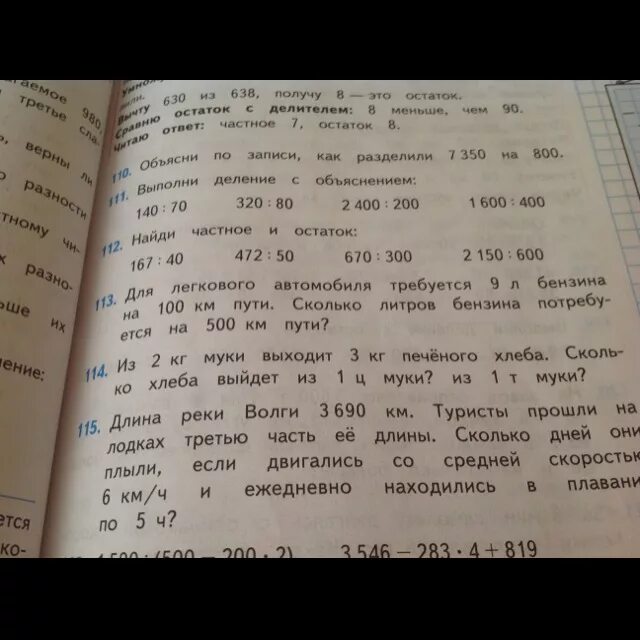 гаемое 980,
третье сла-
верны ли
разности
тному чи-
разно-
ьше их
ение:
ется
ко-
Вычту 630 из 638, получу 8 — это остаток.
Сравню остаток с делителем: 8 меньше, чем 90.
Читаю ответ: частное 7, остаток 8.
110. Объясни по записи, как разделили 7 350 на 800.
111. Выполни деление с объяснением:
140 : 70 320 : 80 2 400 : 200 1 600 : 400
112. Найди частное и остаток:
167 : 40 472 : 50 670 : 300 2 150 : 600
113. Для легкового автомобиля требуется 9 л бензина
на 100 км пути. Сколько литров бензина потребу-
ется на 500 км пути?
114. Из 2 кг муки выходит 3 кг печёного хлеба. Сколь-
ко хлеба выйдет из 1 ц муки? из 1 т муки?
115. Длина реки Волги 3 690 км. Туристы прошли на
лодках третью часть её длины. Сколько дней они
плыли, если двигались со средней скоростью
6 км/ч и ежедневно находились в плавани
по 5 ч?
500 : (500 − 200 · 2) 3 546 − 283 · 4 + 819